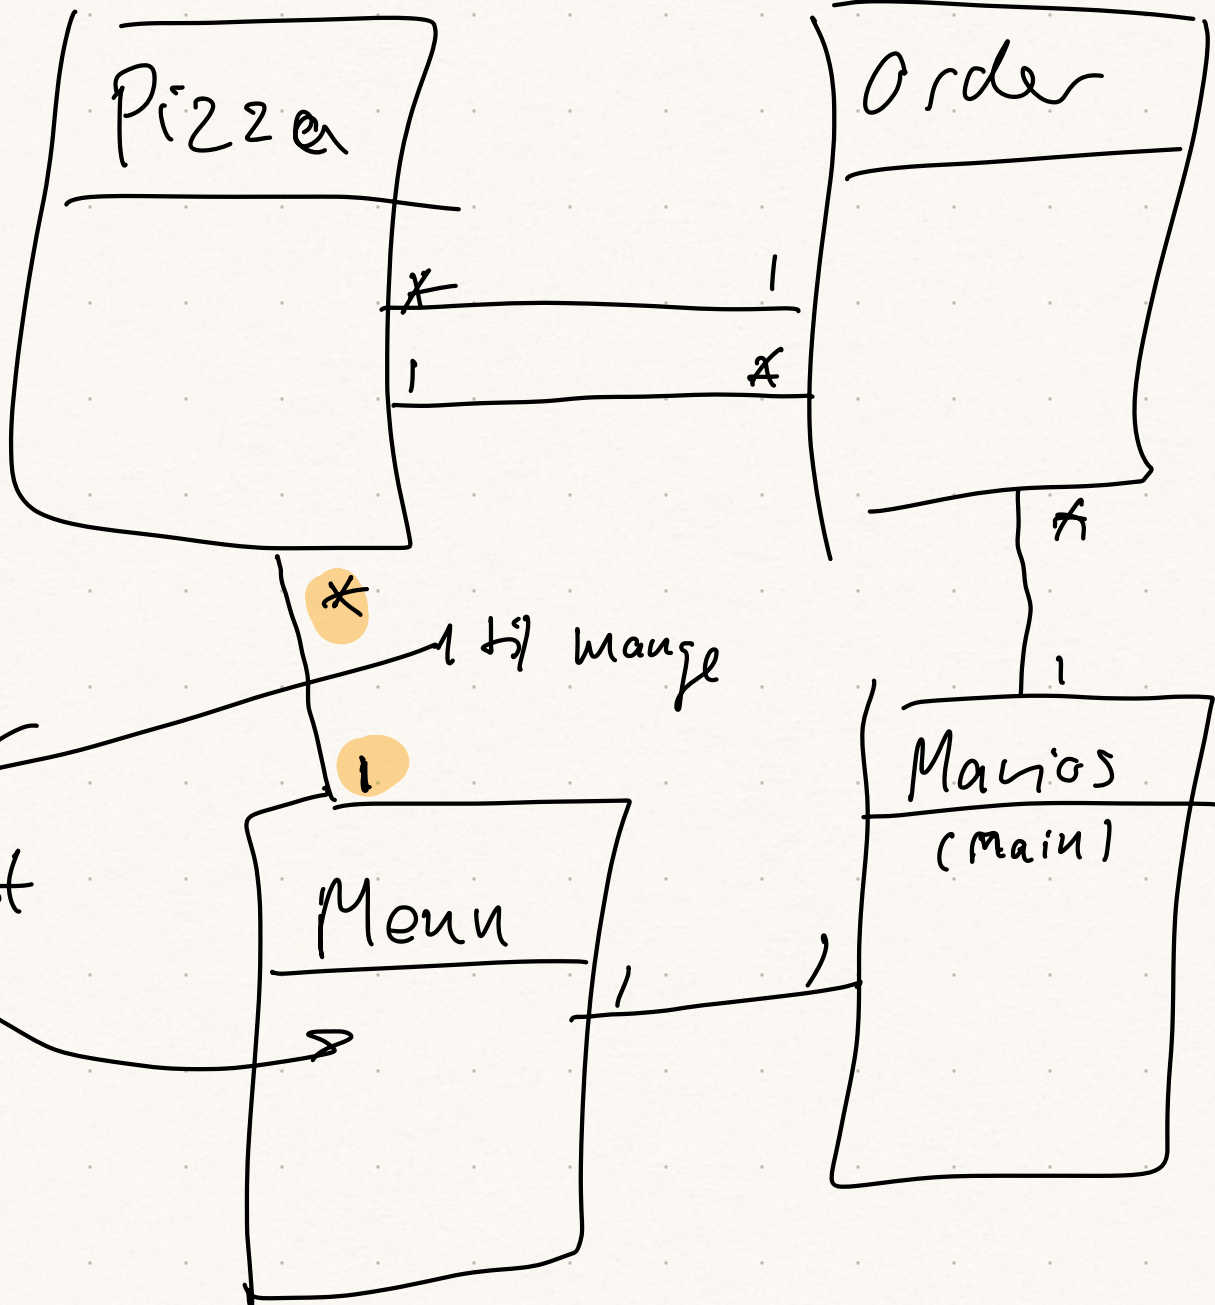 Pizza
Order
* 1
1 *
*
*
1 til mange
1
1
Marios
(Main)
Menu
1 1